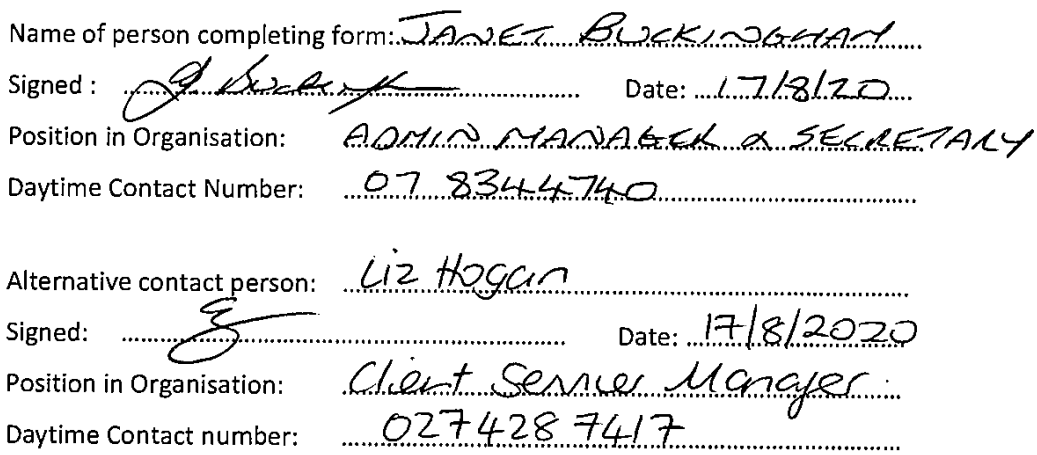 Name of person completing form: JANET BUCKINGHAM
Signed : J Buckingham Date: 17/8/20
Position in Organisation: ADMIN MANAGER & SECRETARY
Daytime Contact Number: 07 8344740
Alternative contact person: Liz Hogan
Signed: Date: 17/8/2020
Position in Organisation: Client Services Manager
Daytime Contact number: 0274287417